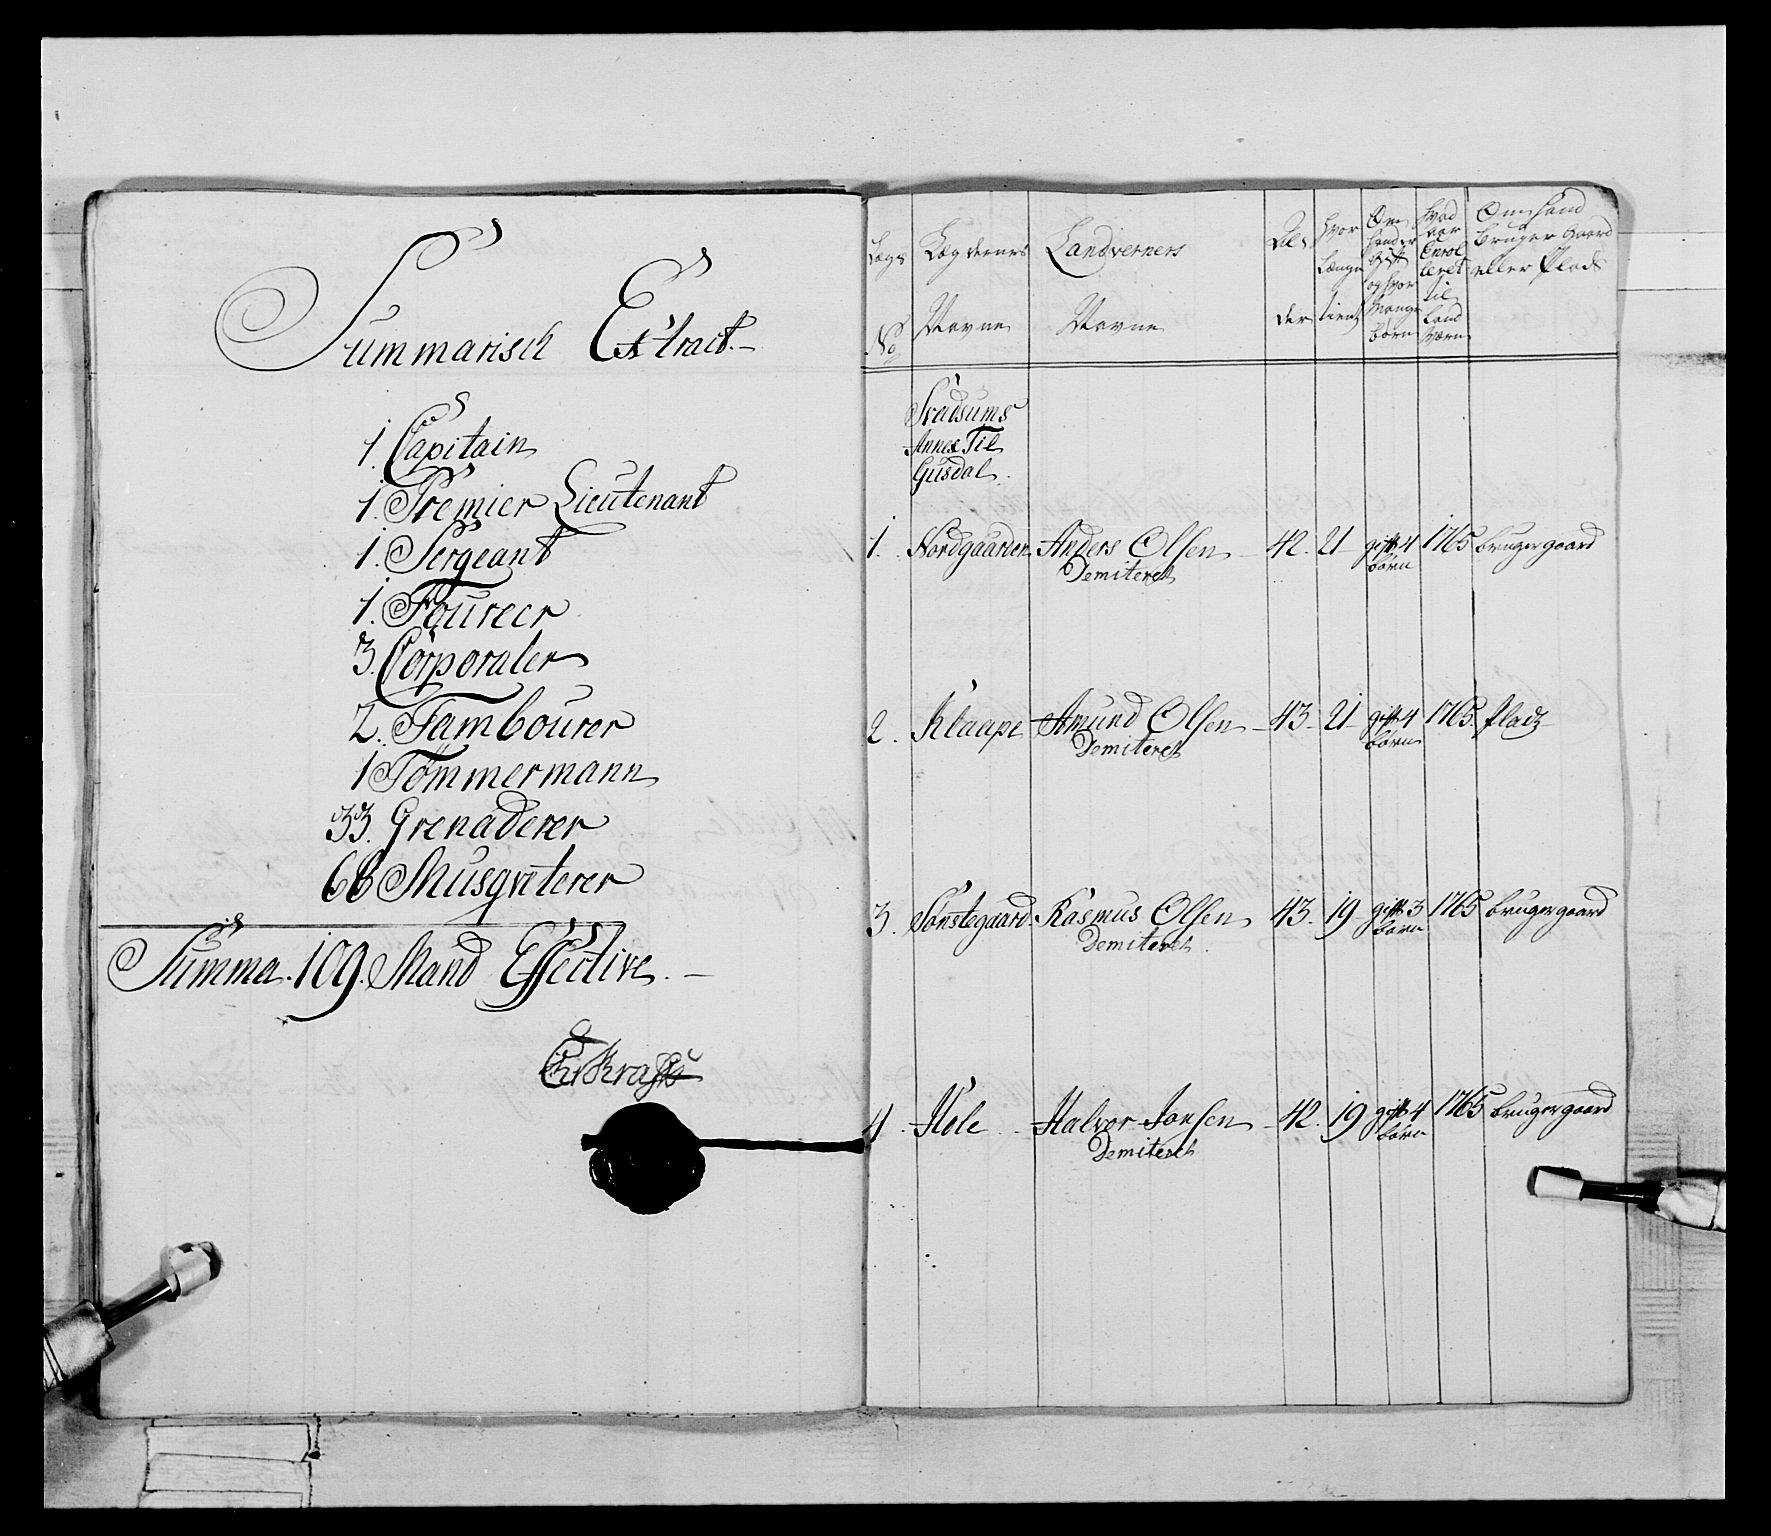 Summarisch Extract.
1. Capitain
1. Premier Lieutenant
1. Sergeant
1. Foureer
3. Corporaler
2. Tambourer
1 Tømmermann
33. Grenaderer
66 Musqveterer
Summa. 109. Mand Effective.
Lægs No
Lægdernes Navne
Landverners Navne
Al der
Hvor Længe tient
Om hand er gift og hvor mange børn
Hvad aar Enrolleret til Land Værn
Om hand bruger gaard eller Plads
Svadsums
Annex Til
Gusdal.
1. Nordgaarden Anders Olsen 42. 21 gift 4 1765 bruger gaard
Demiteret børn
2. Klaape Amund Olsen 43. 21 gift 4 1765. Plads
Demiteret børn
3. Sønstegaard. Rasmus Olsen 43. 19 gift 3 1765 bruger gaard
Demiteret børn
4. Hole Halvor Jonsen 42. 19 gift 4 1765 bruger gaard
Demiteret børn